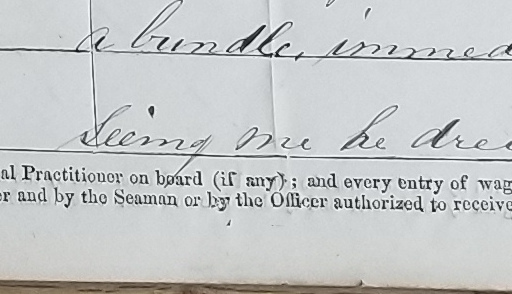 a bundle, immed
Seeing me he dre
al Practitioner on board (if any); and every entry of wag
er and by the Seaman or by the Officer authorized to receive